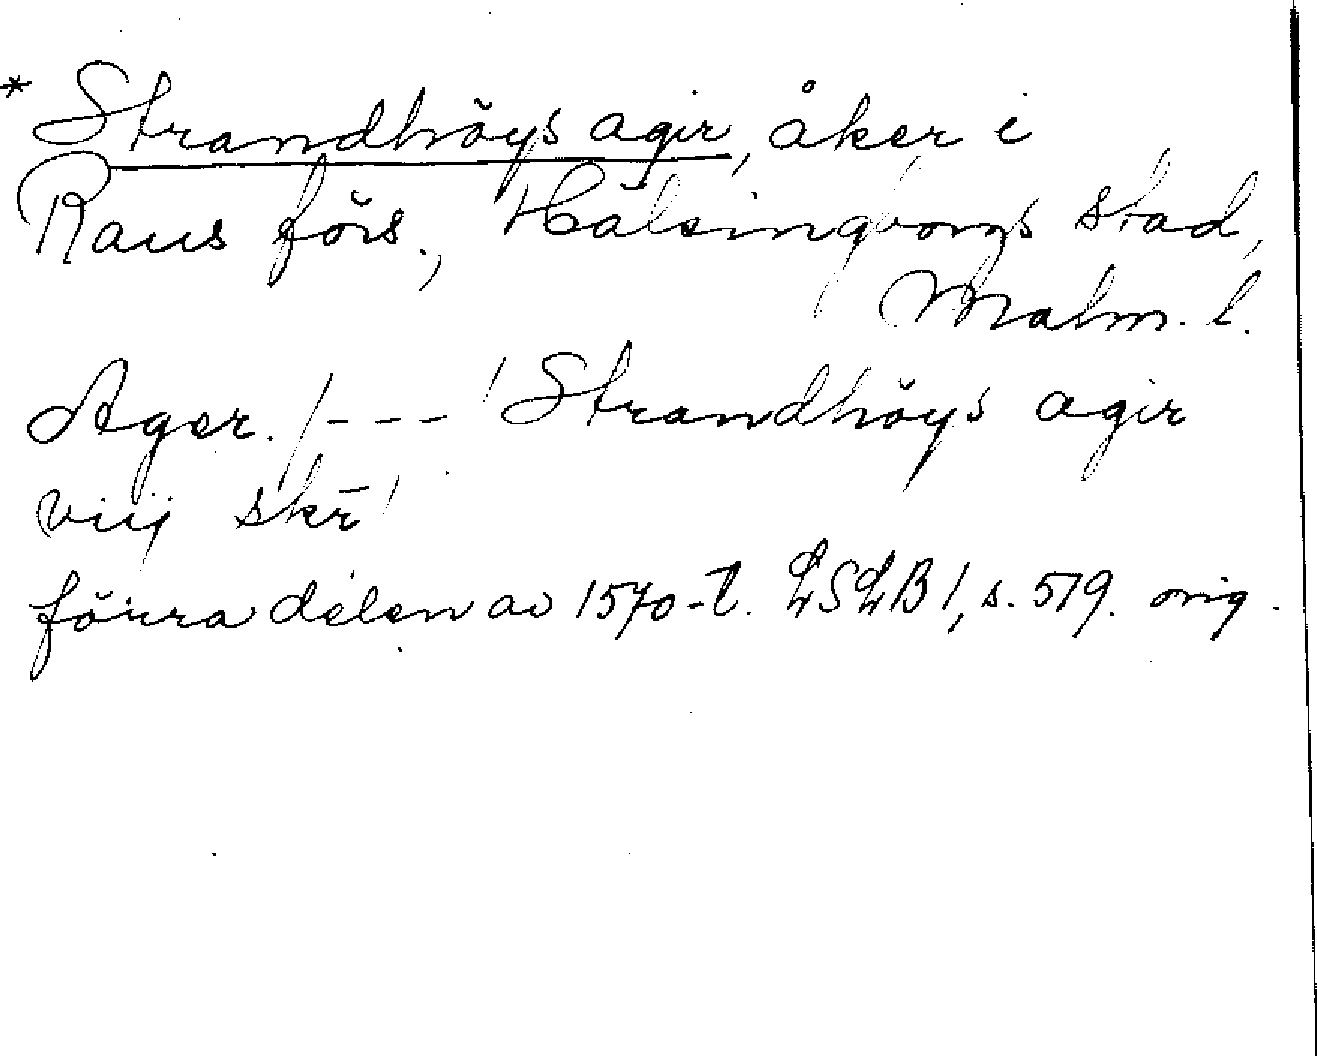 * Strandhöys agir, åker i
Raus förs., Hälsingborgs stad,
Malm. l.
Ager. /--- ' Strandhöys agir
viij skr̄ '
förra delen av 1570-t. LSLB 1, s. 519. orig.